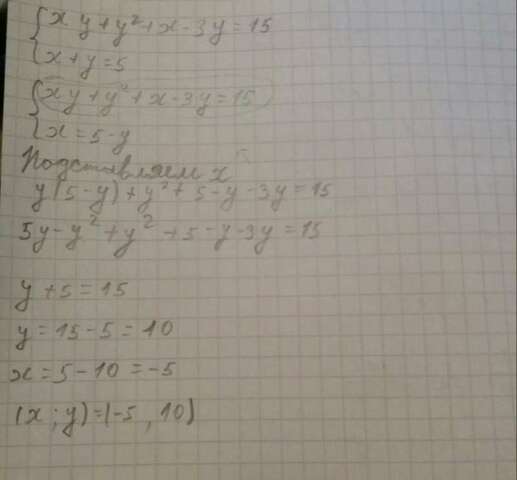 { xy + y² + x - 3y = 15
x + y = 5
{ xy + y² + x - 3y = 15
x = 5 - y
Подставляем x
y(5 - y) + y² + 5 - y - 3y = 15
5y - y² + y² + 5 - y - 3y = 15
y + 5 = 15
y = 15 - 5 = 10
x = 5 - 10 = -5
(x; y) = (-5, 10)